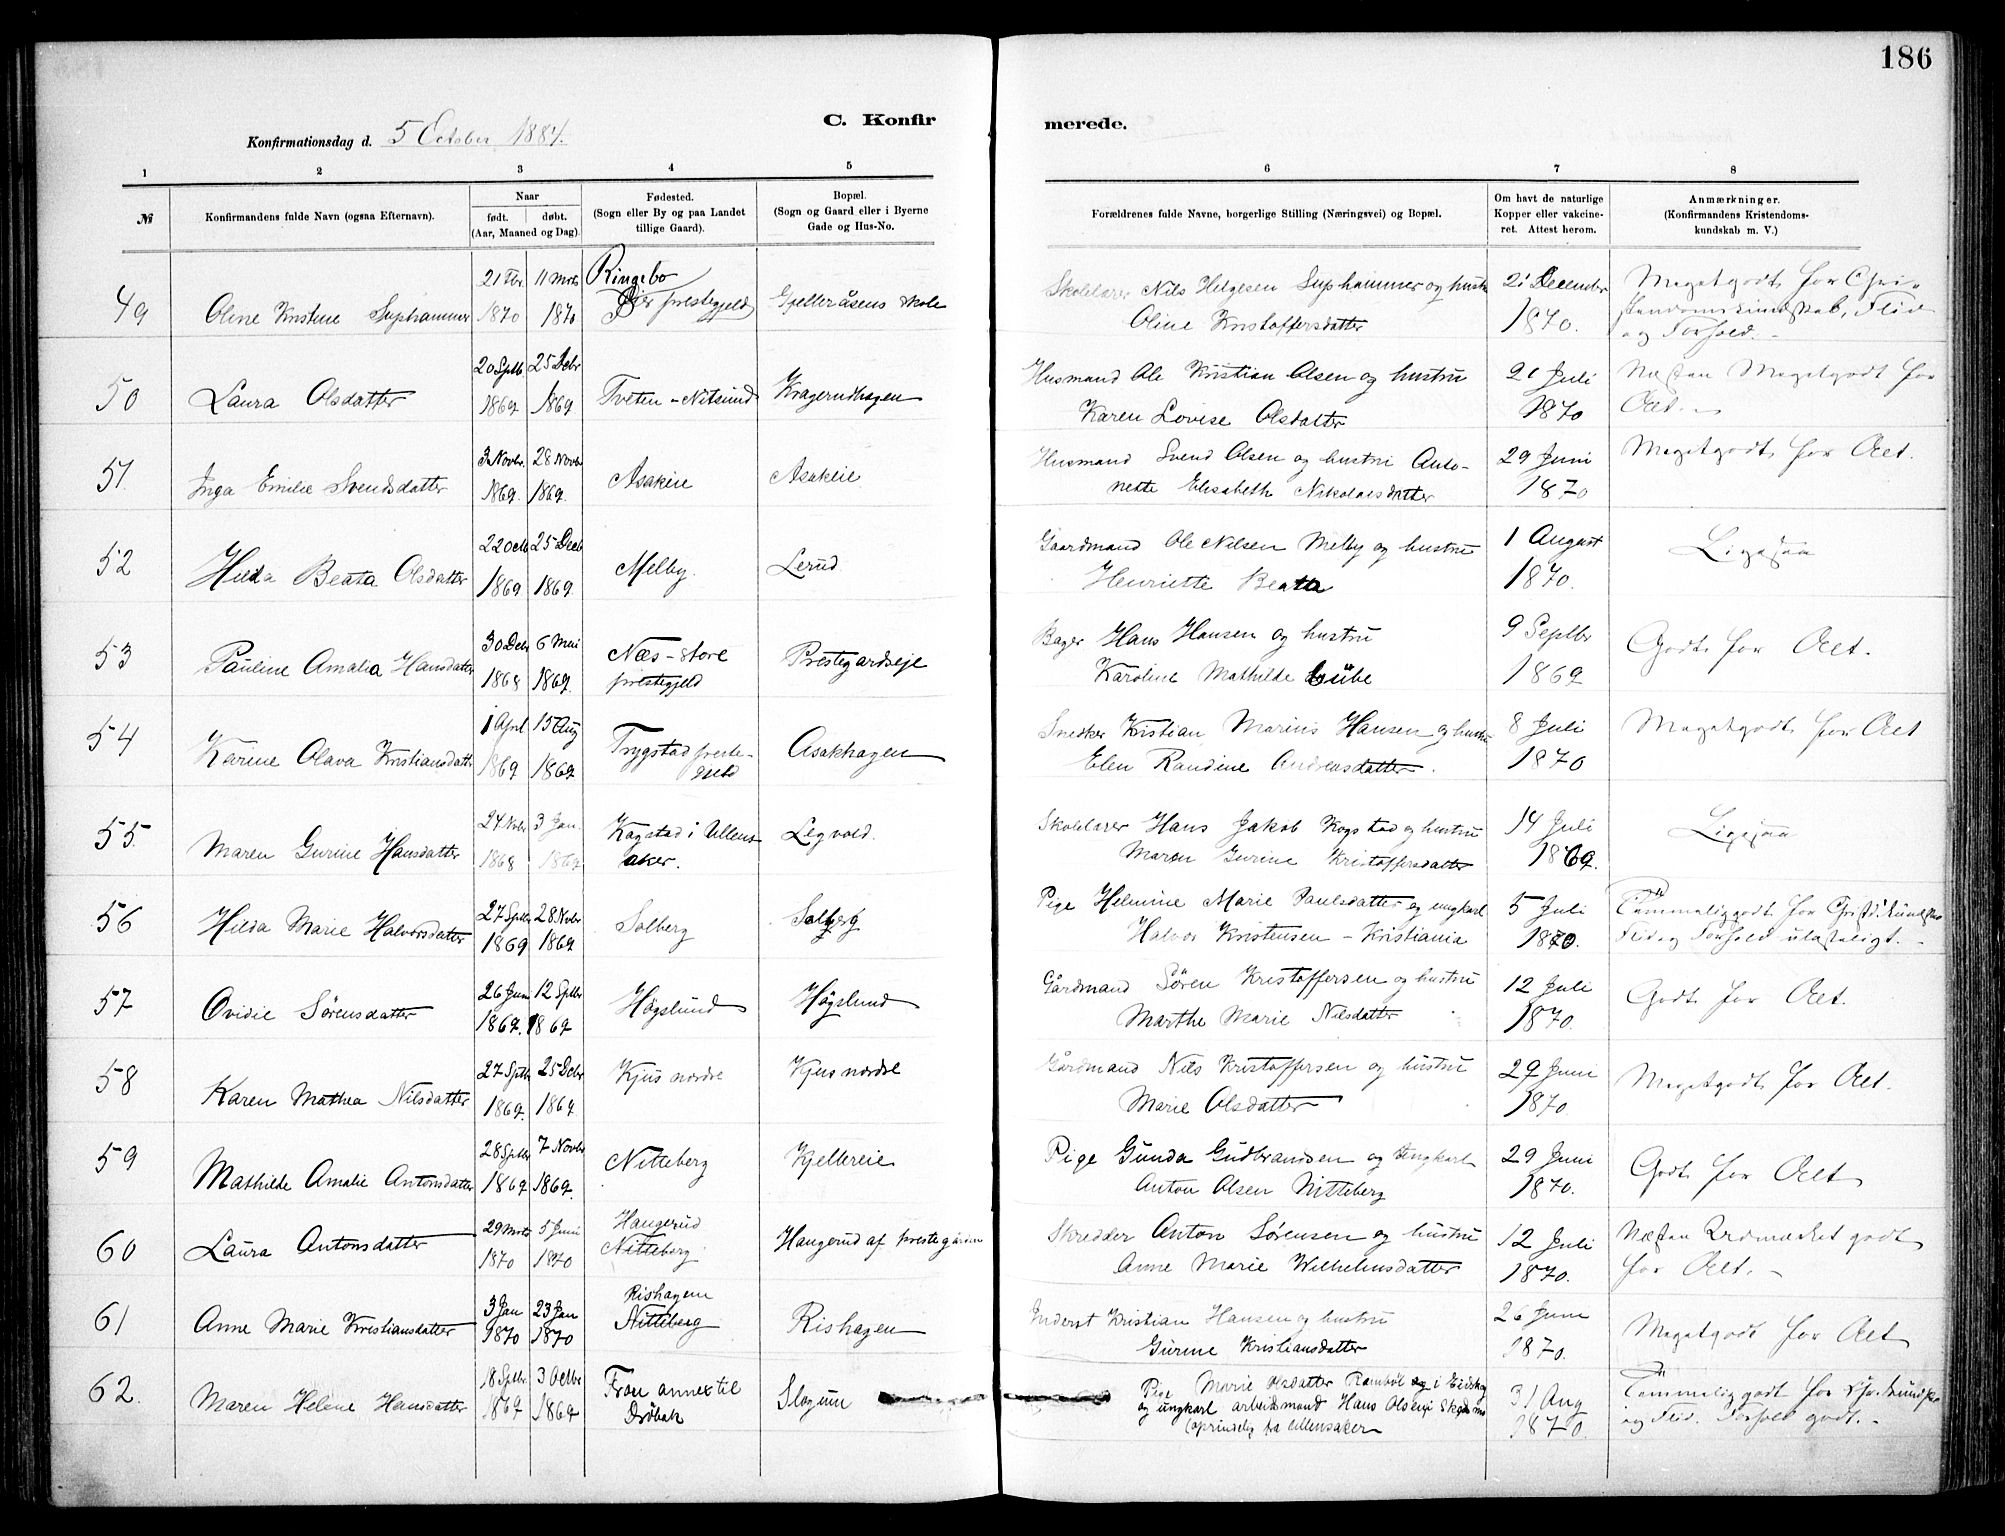 186
C. Konfirmerede.
Konfirmationsdag d. 5 October 1884.
1 2 3 4 5 6 7 8
№
Konfirmandens fulde Navn (ogsaa Efternavn).
Naar
født. døbt.
(Aar, Maaned og Dag).
Fødested.
(Sogn eller By og paa Landet
tillige Gaard).
Bopæl.
(Sogn og Gaard eller i Byerne
Gade og Hus-No.
Forældrenes fulde Navne, borgerlige Stilling (Næringsvei) og Bopæl.
Om havt de naturlige
Kopper eller vakcine-
ret. Attest herom.
Anmærkninger.
(Konfirmandens Kristendoms-
kundskab m. V.)
21 Fbr 11 Mrts Ringebo 21 December Megetgodt for Chri-
49 Oline Kristine Suphammer 1870 1870 prestegjeld Gjelleråsens skole Skolelærer Nils Helgesen Suphammer og hustru stendomskundskab, Flid
Oline Kristoffersdatter 1870. og Forhold.
20 Sptb. 25 Debr Husmand Ole Kristian Olsen og hustru 21 Juli Næsten Megetgodt for
50 Laura Olsdatter 1869 1869 Tveten - Nitsund Kragerudhagen Karen Lovise Olsdatter 1870 Alt.
3 Novbr. 28 Novbr Husmand Svend Olsen og hustru Anto- 29 Juni Megetgodt for Alt.
51. Inga Emilie Svendsdatter 1869. 1869. Asakeie Asakeie nette Elisabeth Nikolaisdatter 1870
22 Octb 25 Decb Gaardmand Ole Nilsen Melby og hustru 1 August
52 Hilda Beata Olsdatter 1869 1869. Melby. Lerud. Henriette Beata 1870. Ligesaa
30 Debr 6 Mai Næs-store Bager Hans Hansen og hustru 9 Septbr
53 Pauline Amalia Hansdatter 1868 1869. prestegjeld Prestegardseje Karoline Mathilde Lübe 1869 Godt for Alt.
1 April 15 Aug Trygstad preste- Snedker Kristian Marius Hansen og hustru 8 Juli Megetgodt for Alt
54 Karine Olava Kristiansdatt 1869 1869 gjeld Asakhagen Elen Randine Andreasdatter. 1870
24 Nvbr 3 Jan. Kogstad i Ullens- Skolelærer Hans Jakob Kogstad og hustru 14 Juli
55. Maren Gurine Hansdatter 1868 1869 aker. Legvold. Maren Gurine Kristoffersdatter 1869. Ligesaa
27 Sptbr 28 Nvbr Pige Helmine Marie Paulsdatter og ungkarl 5 Juli Temmeliggodt for Christd.kundsk
56 Hilda Marie Halvorsdatter 1869 1869 Solberg Solberg Halvor Kristensen - Kristiania 1870. Flid og Forhold ulasteligt.
26 Juni 12 Sptbr Gårdmand Sören Kristoffersen og hustru 12 Juli
57 Ovidie Sørensdatter 1869. 1869 Høgslund Høgslund Marthe Marie Nilsdatter 1870. Godt for Alt.
27 Sptb 25 Debr Gårdmand Nils Kristoffersen og hustru 29 Juni
58 Karen Mathea Nilsdatter 1869. 1869 Kjus nordre Kjus nordre Marie Olsdatter 1870. Megetgodt for Alt.
28 Sptbr 7 Novbr Pige Gunda Gudbrandsen og ungkarl 29 Juni
59 Mathilde Amalie Antonsdatter 1869 1869. Nitteberg Kjellereie Anton Olsen Nitteberg 1870. Godt for Alt
29 Mrts 5 Juni Haugerud Skredder Anton Sørensen og hustru 12 Juli Næsten Udmærket godt
60 Laura Antonsdatter 1870 1870 Nitteberg Haugerud af prestegården Anne Marie Wilhelmsdatter 1870. for Alt.
3 Jan 23 Jan Rishagen Inderst Kristian Hansen og hustru 26 Juni
61 Anne Marie Kristiansdatter 1870 1870 Nitteberg Rishagen Gurine Kristiansdatter 1870. Megetgodt for Alt
18 Sptbr 3 Octbr Fron annex til Pige Marie Olsdatter i Eidskog 31 Aug Temmeliggodt for
62. Maren Helene Hansdatter 1869 1869 Drøbak Slogum og ungkarl arbeidsmand Hans Olsen i 1870. og Flid. Forhold godt.
(oprindelig fra Ullensaker